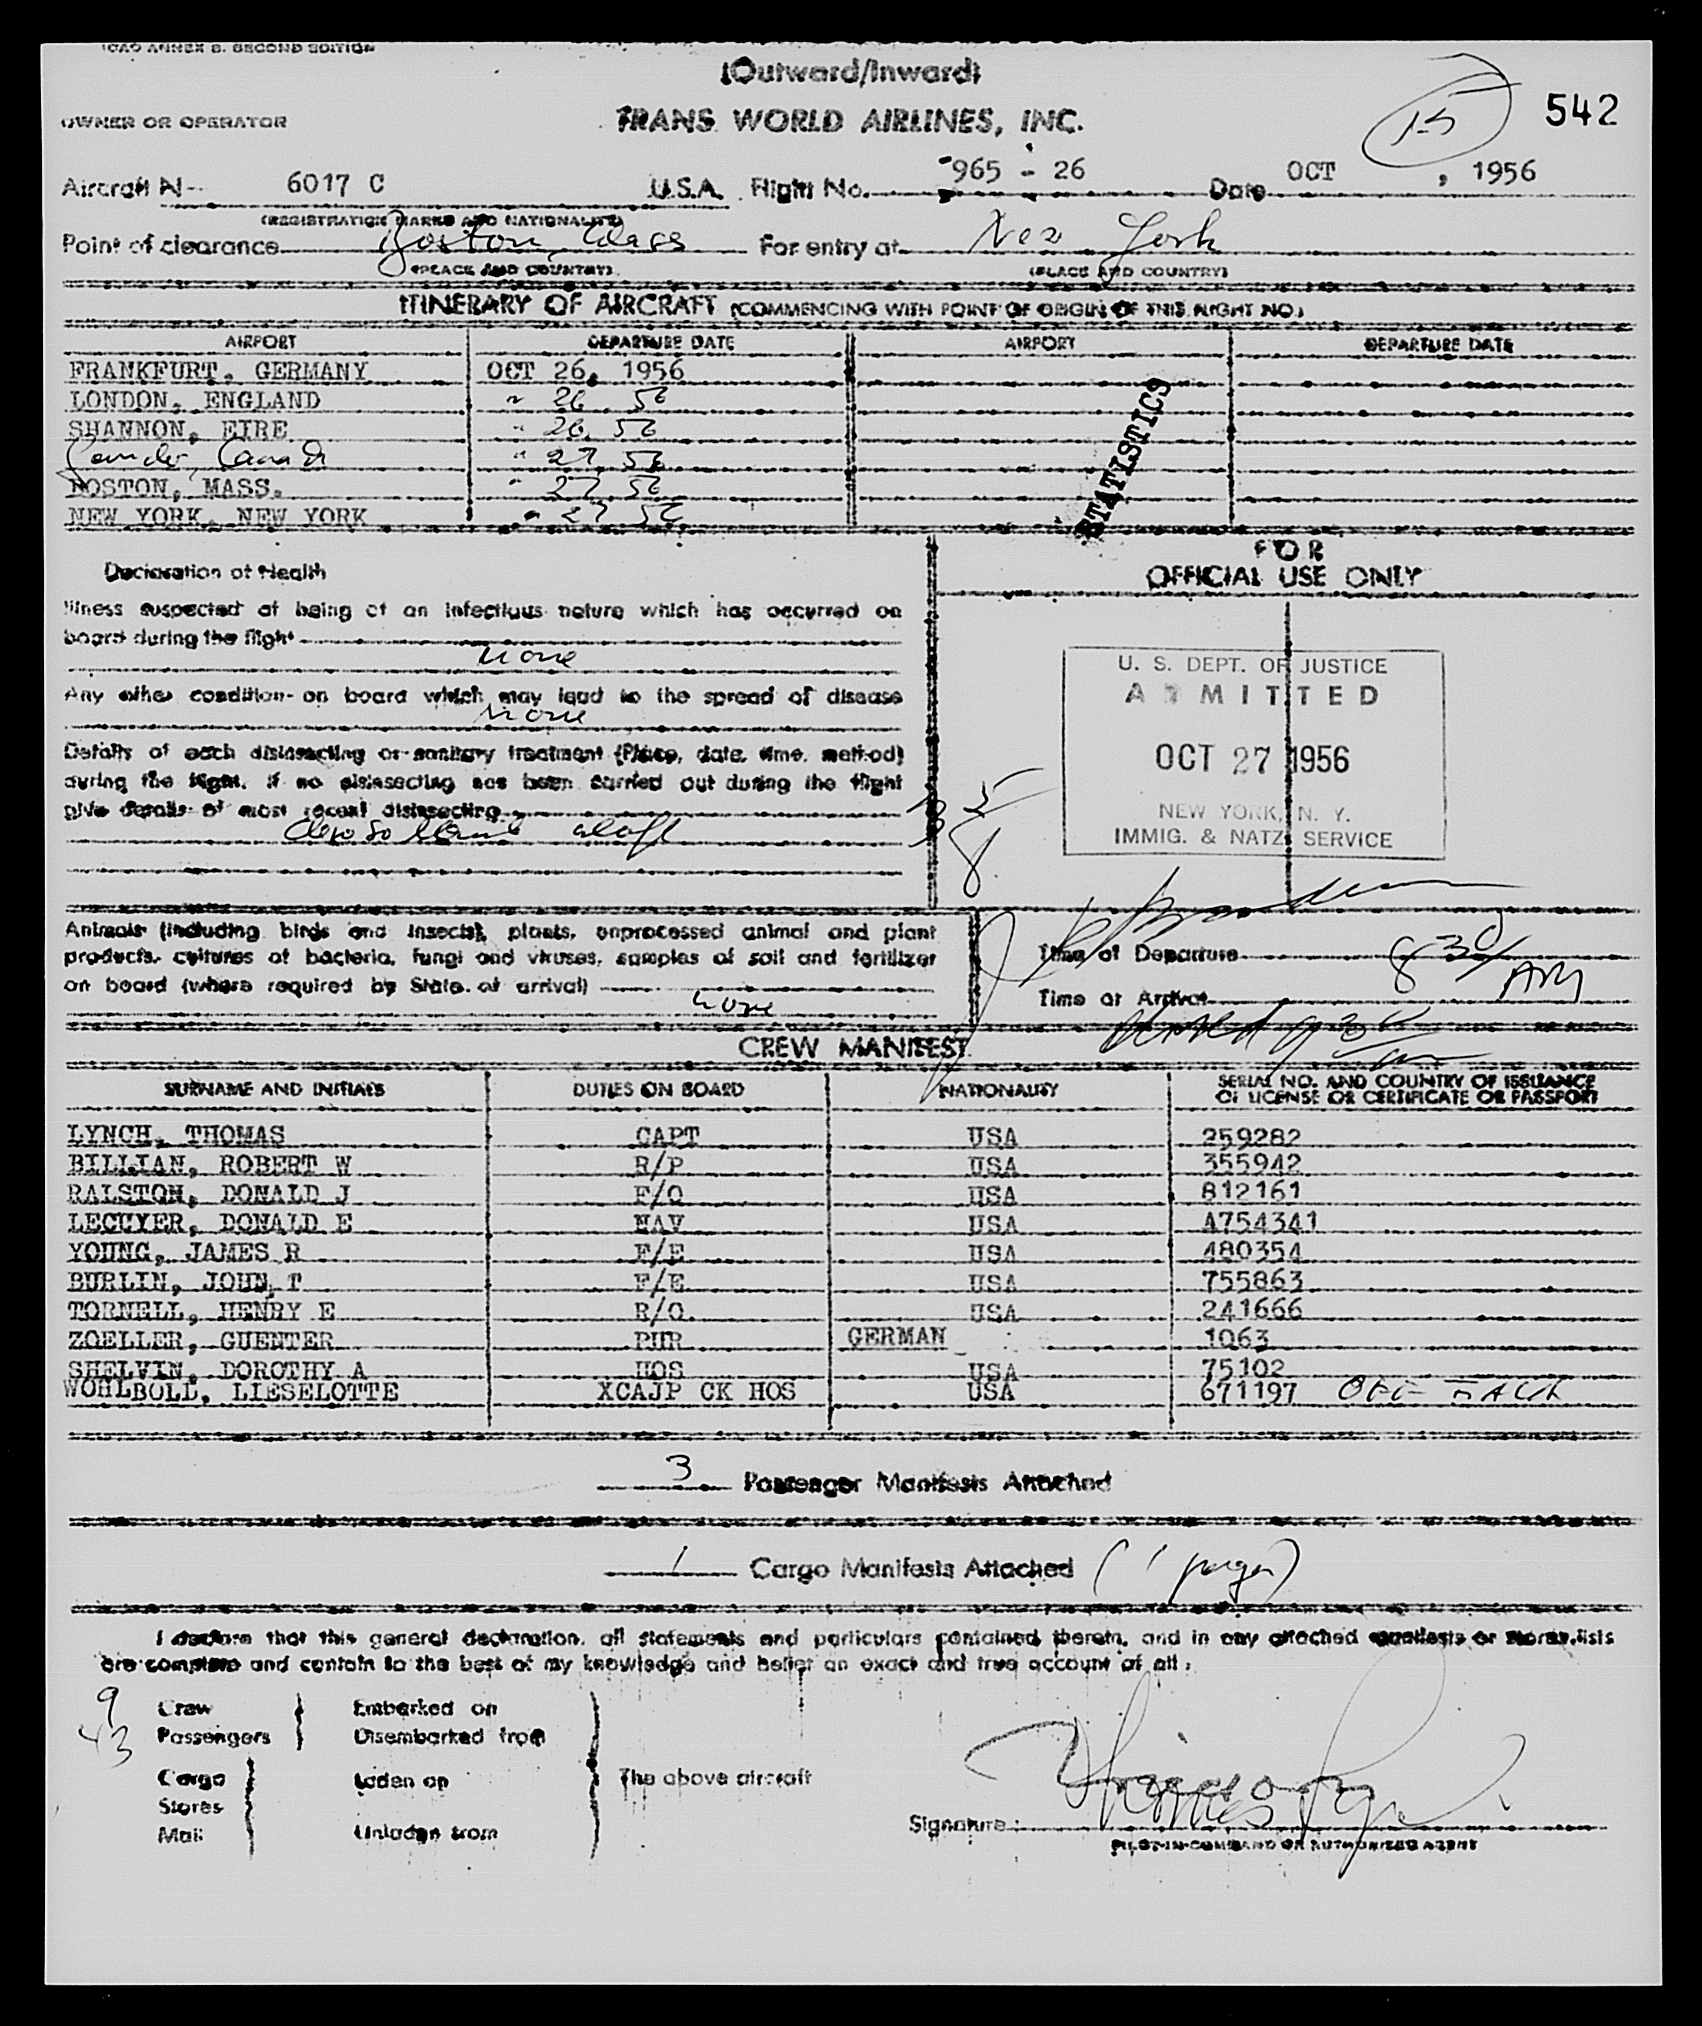 ICAO ANNEX 9. SECOND EDITION
(Outward/Inward)
OWNER OR OPERATOR TRANS WORLD AIRLINES, INC. 15 542
Aircraft N- 6017 C U.S.A. Flight No. 965 - 26 Date OCT , 1956
(REGISTRATION MARKS AND NATIONALITY)
Point of clearance Boston, Mass For entry at New York
(PLACE AND COUNTRY) (PLACE AND COUNTRY)
ITINERARY OF AIRCRAFT (COMMENCING WITH POINT OF ORIGIN OF THIS FLIGHT NO.)
AIRPORT DEPARTURE DATE AIRPORT DEPARTURE DATE
FRANKFURT, GERMANY OCT 26, 1956
LONDON, ENGLAND " 26 56
SHANNON, EIRE " 26 56
Gander, Canada " 27 56
BOSTON, MASS. " 27 56
NEW YORK, NEW YORK " 27 56
STATISTICS
FOR
OFFICIAL USE ONLY
Declaration of Health
Illness suspected of being of an infectious nature which has occurred on
board during the flight
none
Any other condition on board which may lead to the spread of disease
none
Details of each disinsecting or sanitary treatment (Place, date, time, method)
during the flight. If no disinsecting has been carried out during the flight
give details of most recent disinsecting
aloft
U. S. DEPT. OF JUSTICE
ADMITTED
OCT 27 1956
NEW YORK, N. Y.
IMMIG. & NATZ. SERVICE
Animals (including birds and insects), plants, unprocessed animal and plant
products, cultures of bacteria, fungi and viruses, samples of soil and fertilizer
on board (where required by State of arrival)
none
Time of Departure 8 30 AM
Time of Arrival
CREW MANIFEST
SURNAME AND INITIALS DUTIES ON BOARD NATIONALITY SERIAL NO. AND COUNTRY OF ISSUANCE
OF LICENSE OR CERTIFICATE OR PASSPORT
LYNCH, THOMAS CAPT USA 259282
BILLIAN, ROBERT W R/P USA 355942
RALSTON, DONALD J F/O USA 812161
LECUYER, DONALD E NAV USA A754341
YOUNG, JAMES R F/E USA 480354
BURLIN, JOHN T F/E USA 755863
TORNELL, HENRY E R/O USA 241666
ZOELLER, GUENTER PUR GERMAN 1063
SHELVIN, DOROTHY A HOS USA 75102
WOHLBOLL, LIESELOTTE XCAJP CK HOS USA 671197
3 Passenger Manifests Attached
1 Cargo Manifests Attached (1 page)
I declare that this general declaration, all statements and particulars contained therein, and in any attached manifests or stores lists
are complete and contain to the best of my knowledge and belief an exact and true account of all:
9 Crew Embarked on
43 Passengers Disembarked from
Cargo Laden on The above aircraft
Stores
Mail Unladen from
Signature:
PILOT-IN-COMMAND OR AUTHORIZED AGENT